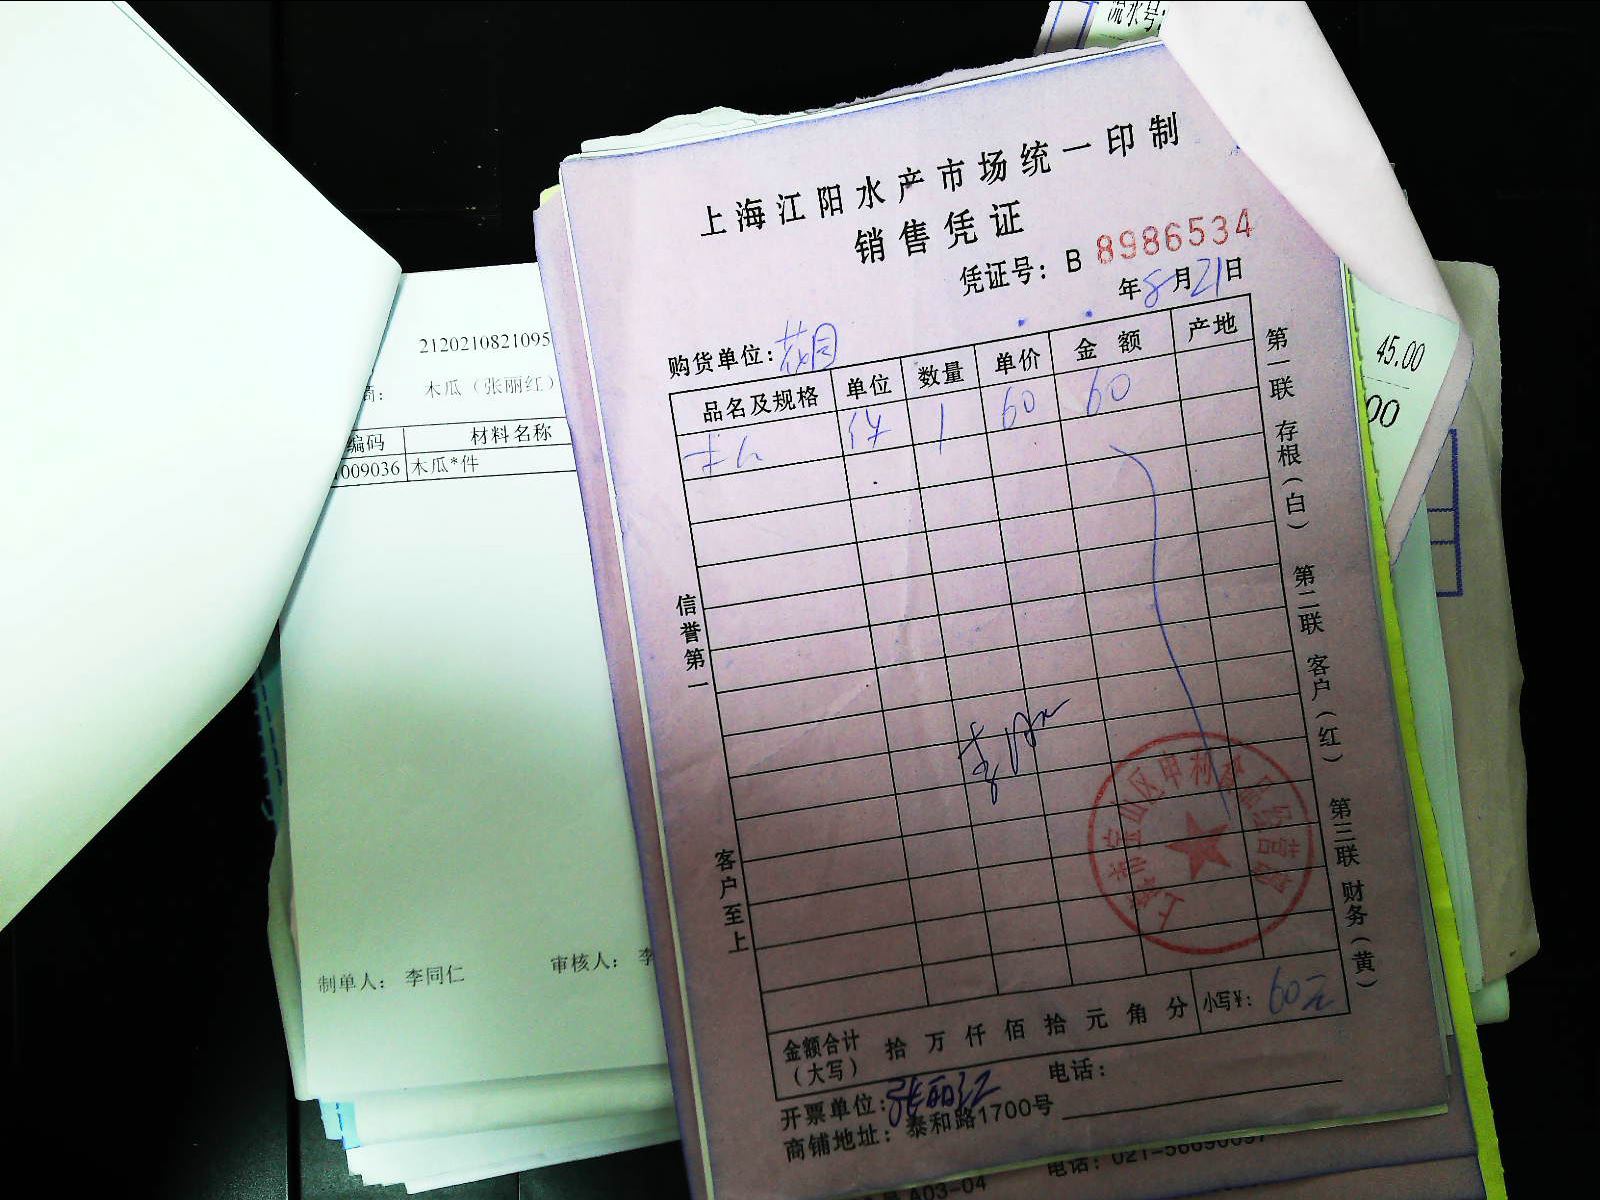 流水号:
上海江阳水产市场统一印制
销售凭证
凭证号: B 8986534
年8月21日
购货单位:
品名及规格 单位 数量 单价 金额 产地
件 1 60 60
信誉第一
客户至上
第一联 存根(白) 第二联 客户(红) 第三联 财务(黄)
金额合计(大写) 拾 万 仟 佰 拾 元 角 分 小写¥: 60元
开票单位: 张丽红 电话:
商铺地址: 泰和路1700号
2120210821095
木瓜(张丽红)
编码 材料名称
009036 木瓜*件
制单人: 李同仁 审核人: 李
45.00
00
A03-04